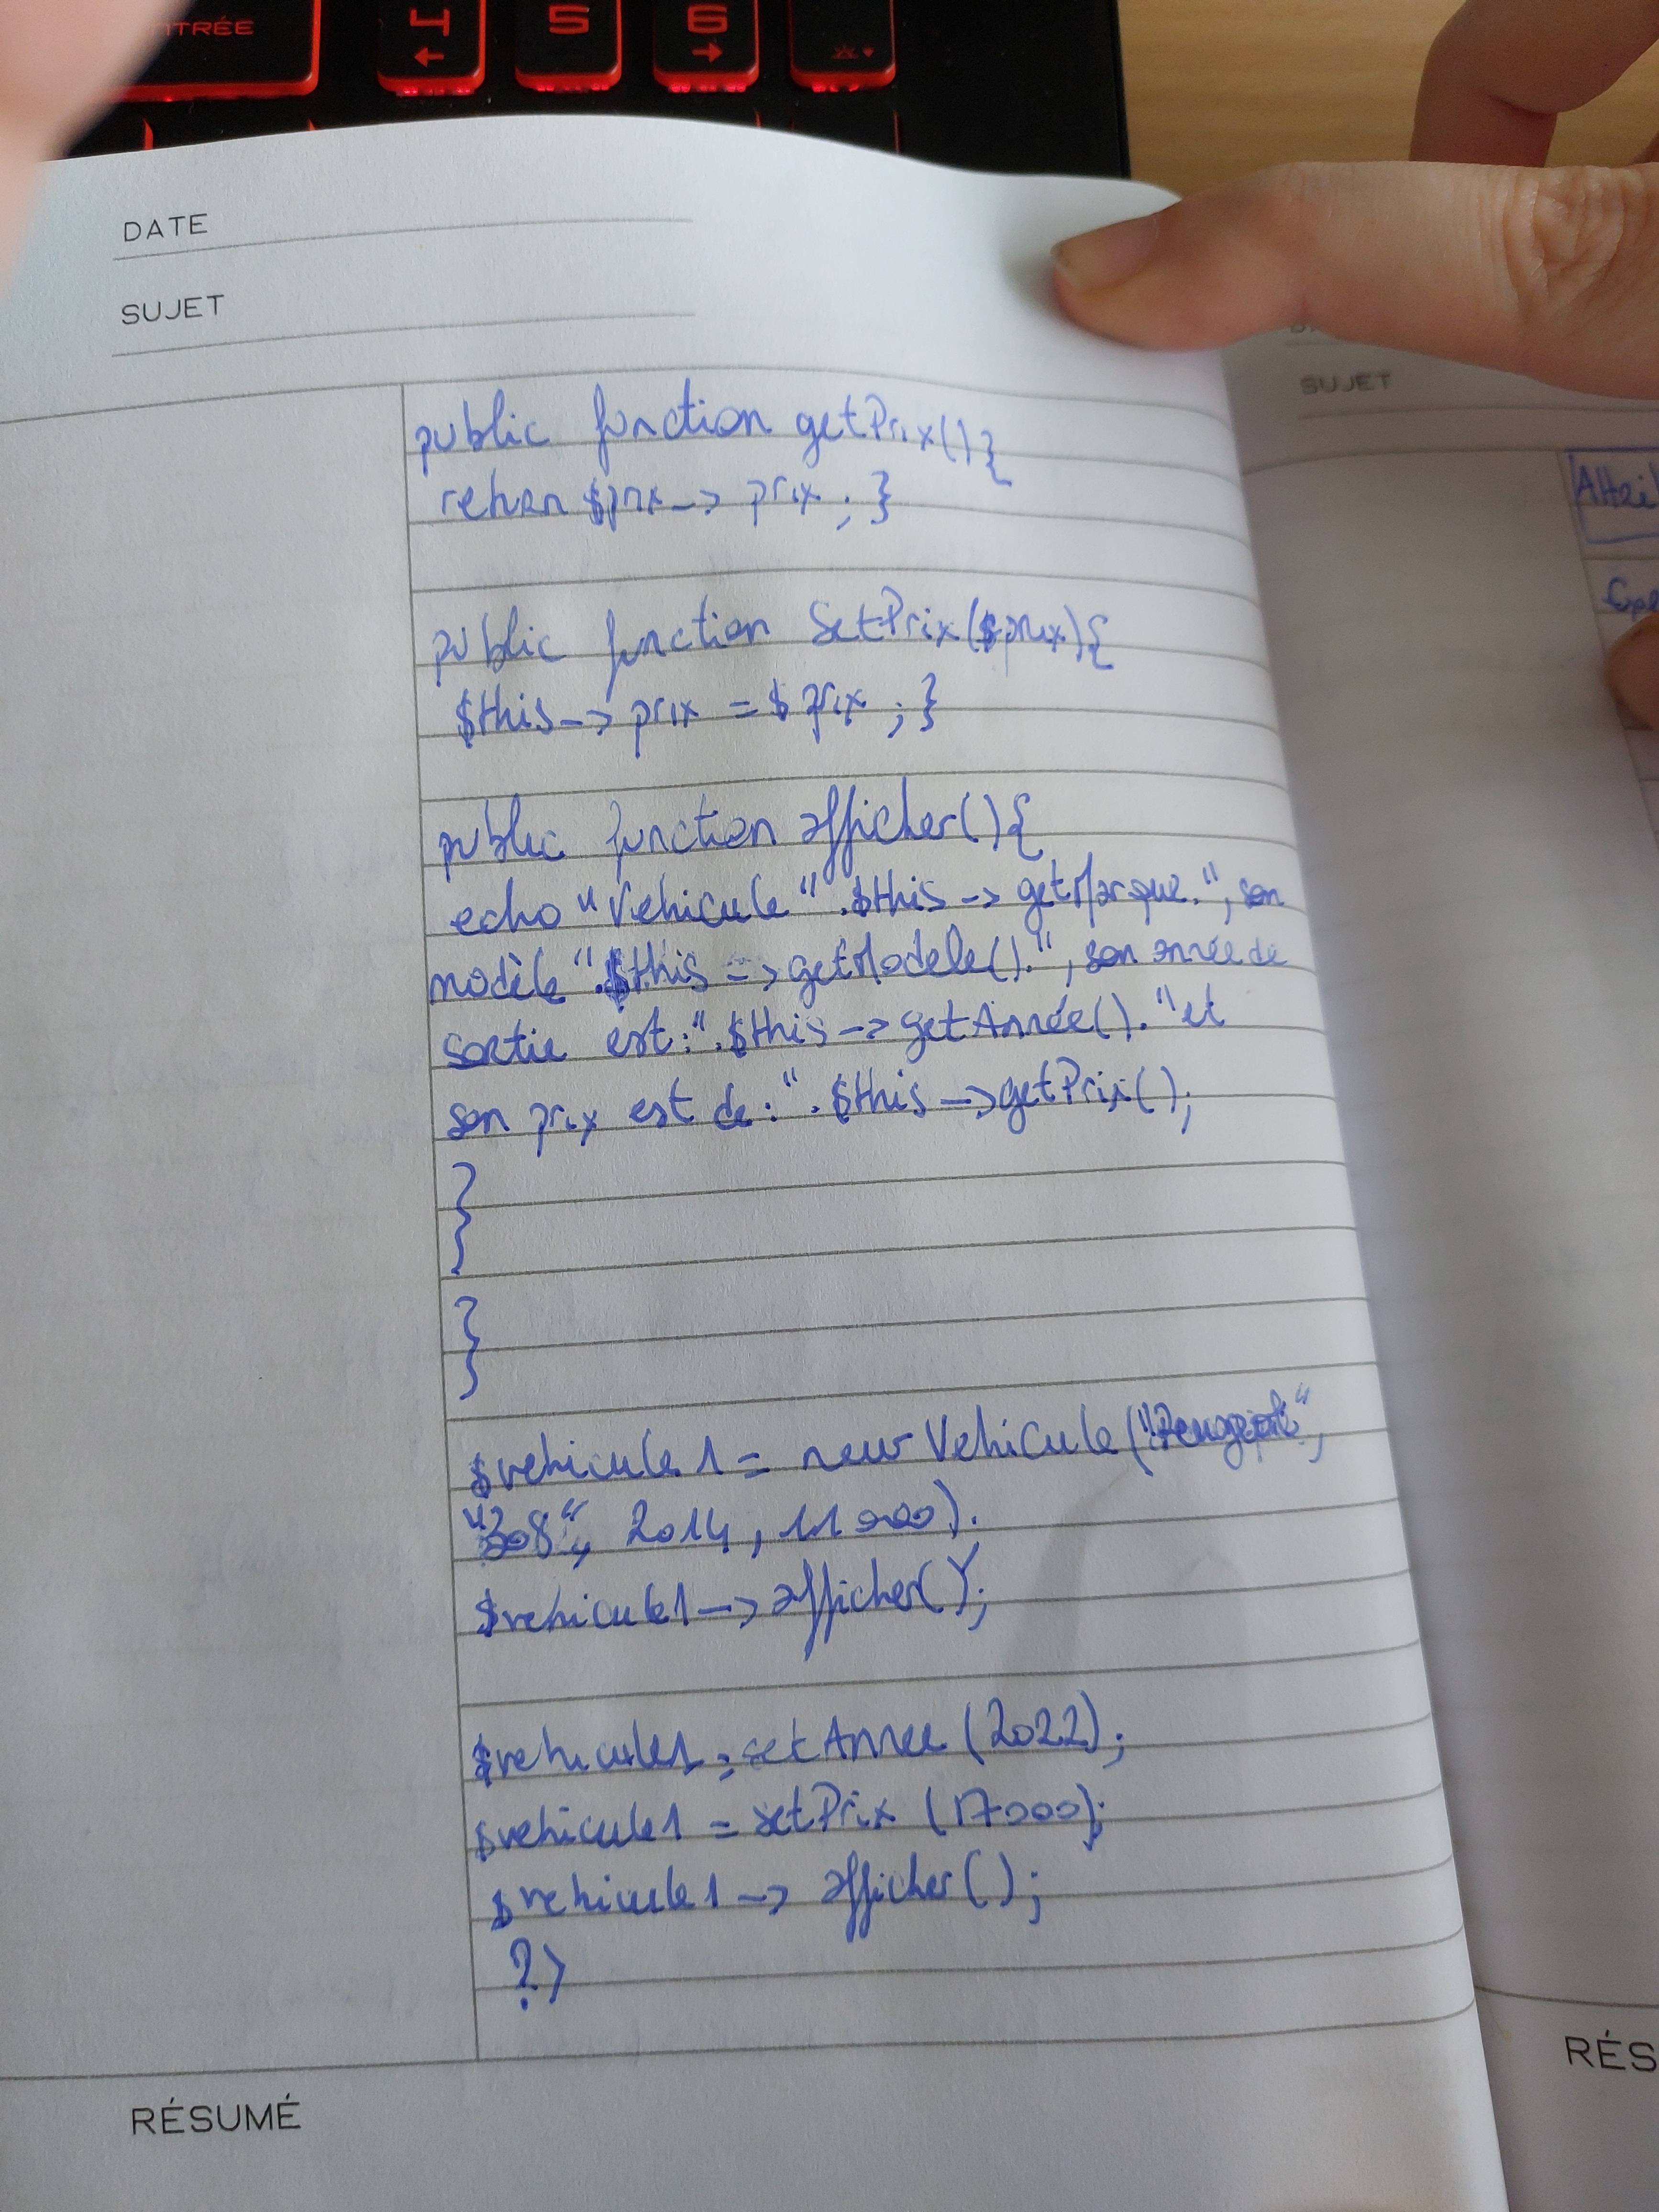 NTRÉE
4
5
6
DATE
SUJET
SUJET
public function getPrix(){
return $prix -> prix ; }
public function SetPrix($prix){
$this -> prix = $ prix ; }
public function afficher(){
echo "Vehicule" .$this -> getMarque.", son
modèle ".$this -> getModele().", son année de
sortie est:" .$this -> getAnnée(). "et
son prix est de :" . $this -> getPrix();
}
}
$vehicule1 = new Vehicule ("Peugeot",
"308", 2014, 11000).
$vehicule1 -> afficher();
$vehicule1 = setAnnee (2022);
$vehicule1 = setPrix (17000);
$vehicule1 -> afficher();
?>
RÉSUMÉ
RÉS